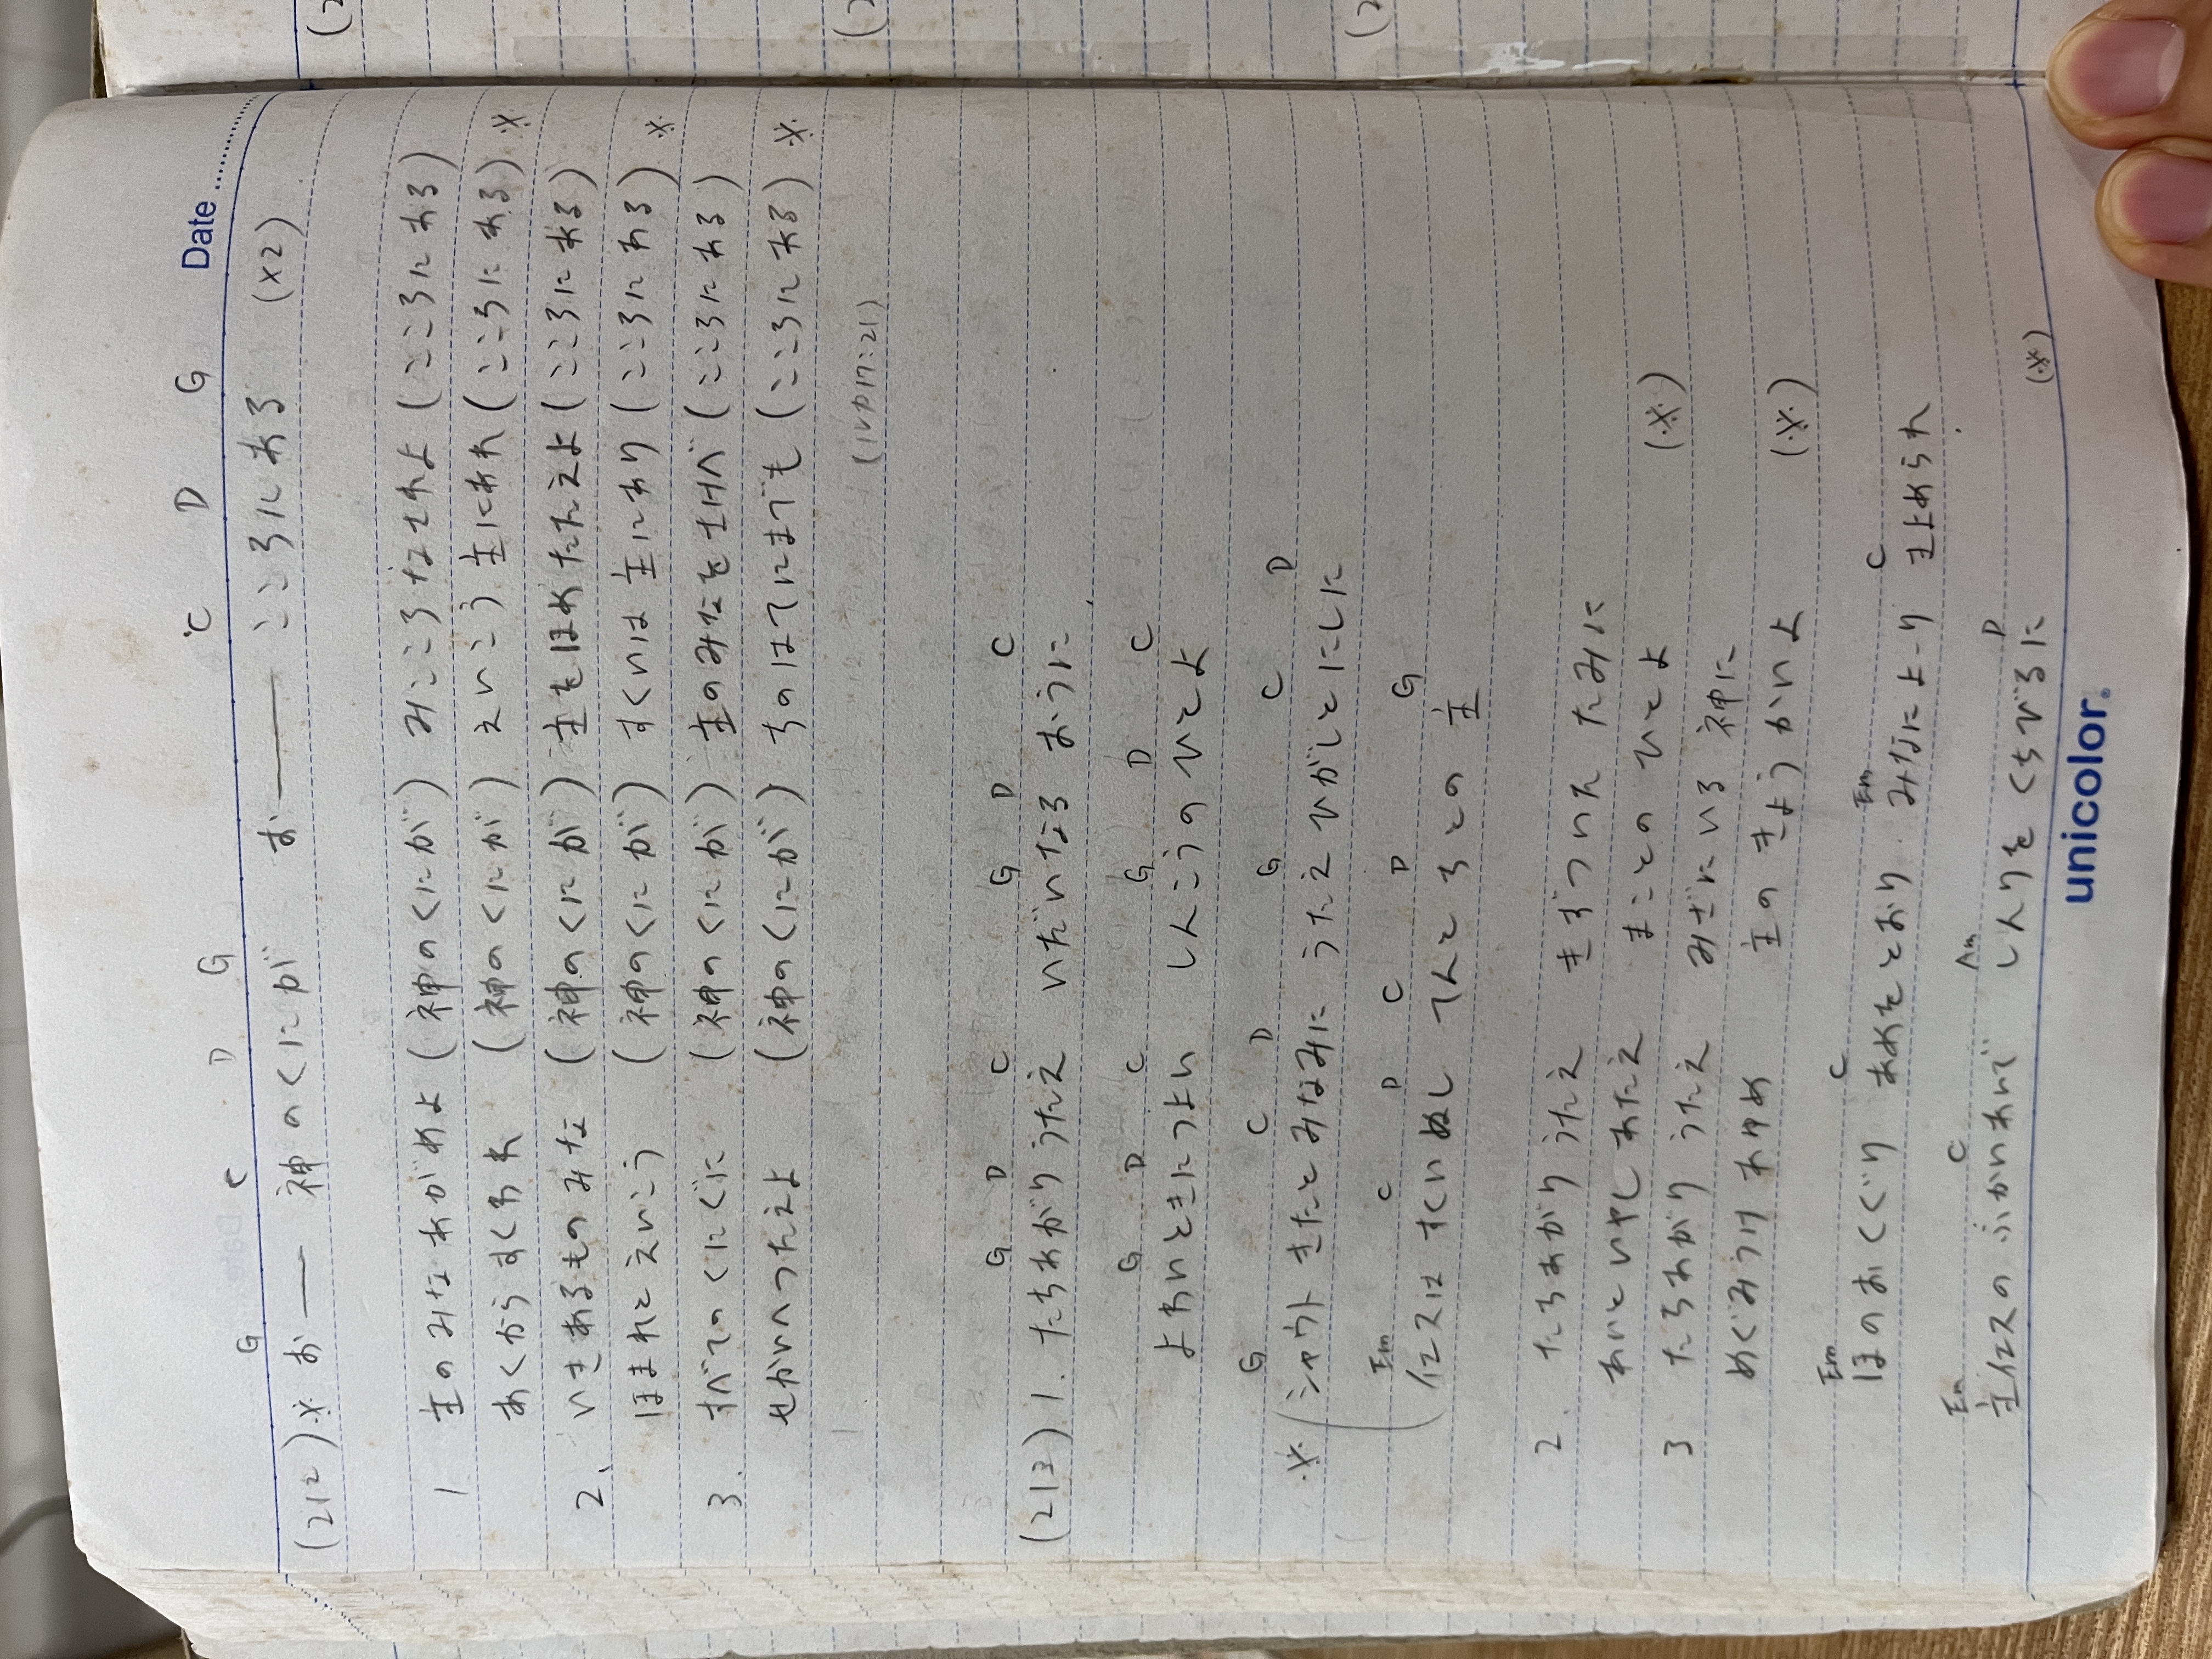 Date
G C D G C D G
(212) ※ お ― 神のくにが お ― こころにある (×2)
1 主のみなあがめよ (神のくにが) みこころなされよ (こころにある)
あくからすくわれ (神のくにが) えいこう主にあれ (こころにある) ※
2、 いきあるものみな (神のくにが) 主をほめたたえよ (こころにある)
ほまれとえいこう (神のくにが) すくいは主にあり (こころにある) ※
3. すべてのくにぐに (神のくにが) 主のみなをさけべ (こころにある)
せかいへつたえよ (神のくにが) ちのはてにまでも (こころにある) ※
(ルカ17:21)
G D C G D C
(213) 1. たちあがりうたえ いだいなるおうに
G D C G D C
よわいときにつよい しんこうのひとよ
G C D G C D
※ (シャウト きたとみなみに うたえひがしとにしに
Em C D C D G
イエスはすくいぬし てんとちとの主
2. たちあがりうたえ きずついたたみに
あいといやしあたえ まことのひとよ (※)
3 たちあがりうたえ みざにいる神に
めぐみうけあゆめ 主のきょうかいよ (※)
Em C Em C
ほのおくぐり あめをとおり みなにより きよめられ
Em C Am D
主イエスのふかいあいで しんりをくちびるに (※)
unicolor.
(2
(2
(2